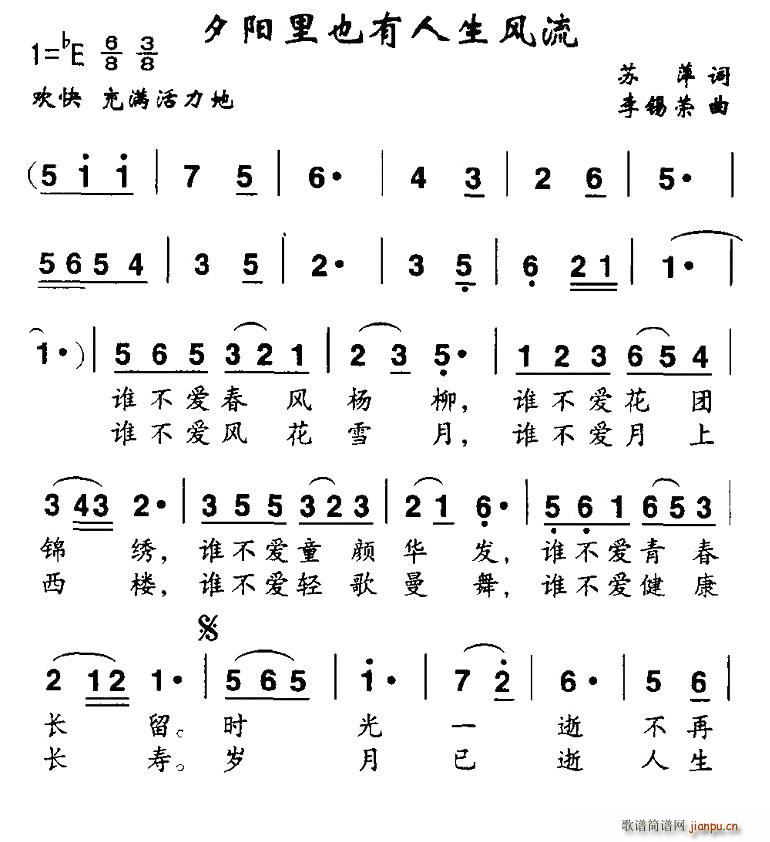 夕阳里也有人生风流
1=♭E 6/8 3/8
苏 萍 词
欢快 充满活力地
李锡荣 曲
(5 i i | 7 5 | 6· | 4 3 | 2 6 | 5· |
5 6 5 4 | 3 5 | 2· | 3 5 | 6 2 1 | 1· |
1·) | 5 6 5 3 2 1 | 2 3 5· | 1 2 3 6 5 4 |
谁不爱春风杨柳，谁不爱花团
谁不爱风花雪月，谁不爱月上
3 4 3 2· | 3 5 5 3 2 3 | 2 1 6· | 5 6 1 6 5 3 |
锦绣，谁不爱童颜华发，谁不爱青春
西楼，谁不爱轻歌曼舞，谁不爱健康
2 1 2 1· | 5 6 5 | i· | 7 2 | 6· | 5 6 |
长留。时光一逝不再
长寿。岁月已逝人生
歌谱简谱网 jianpu.cn